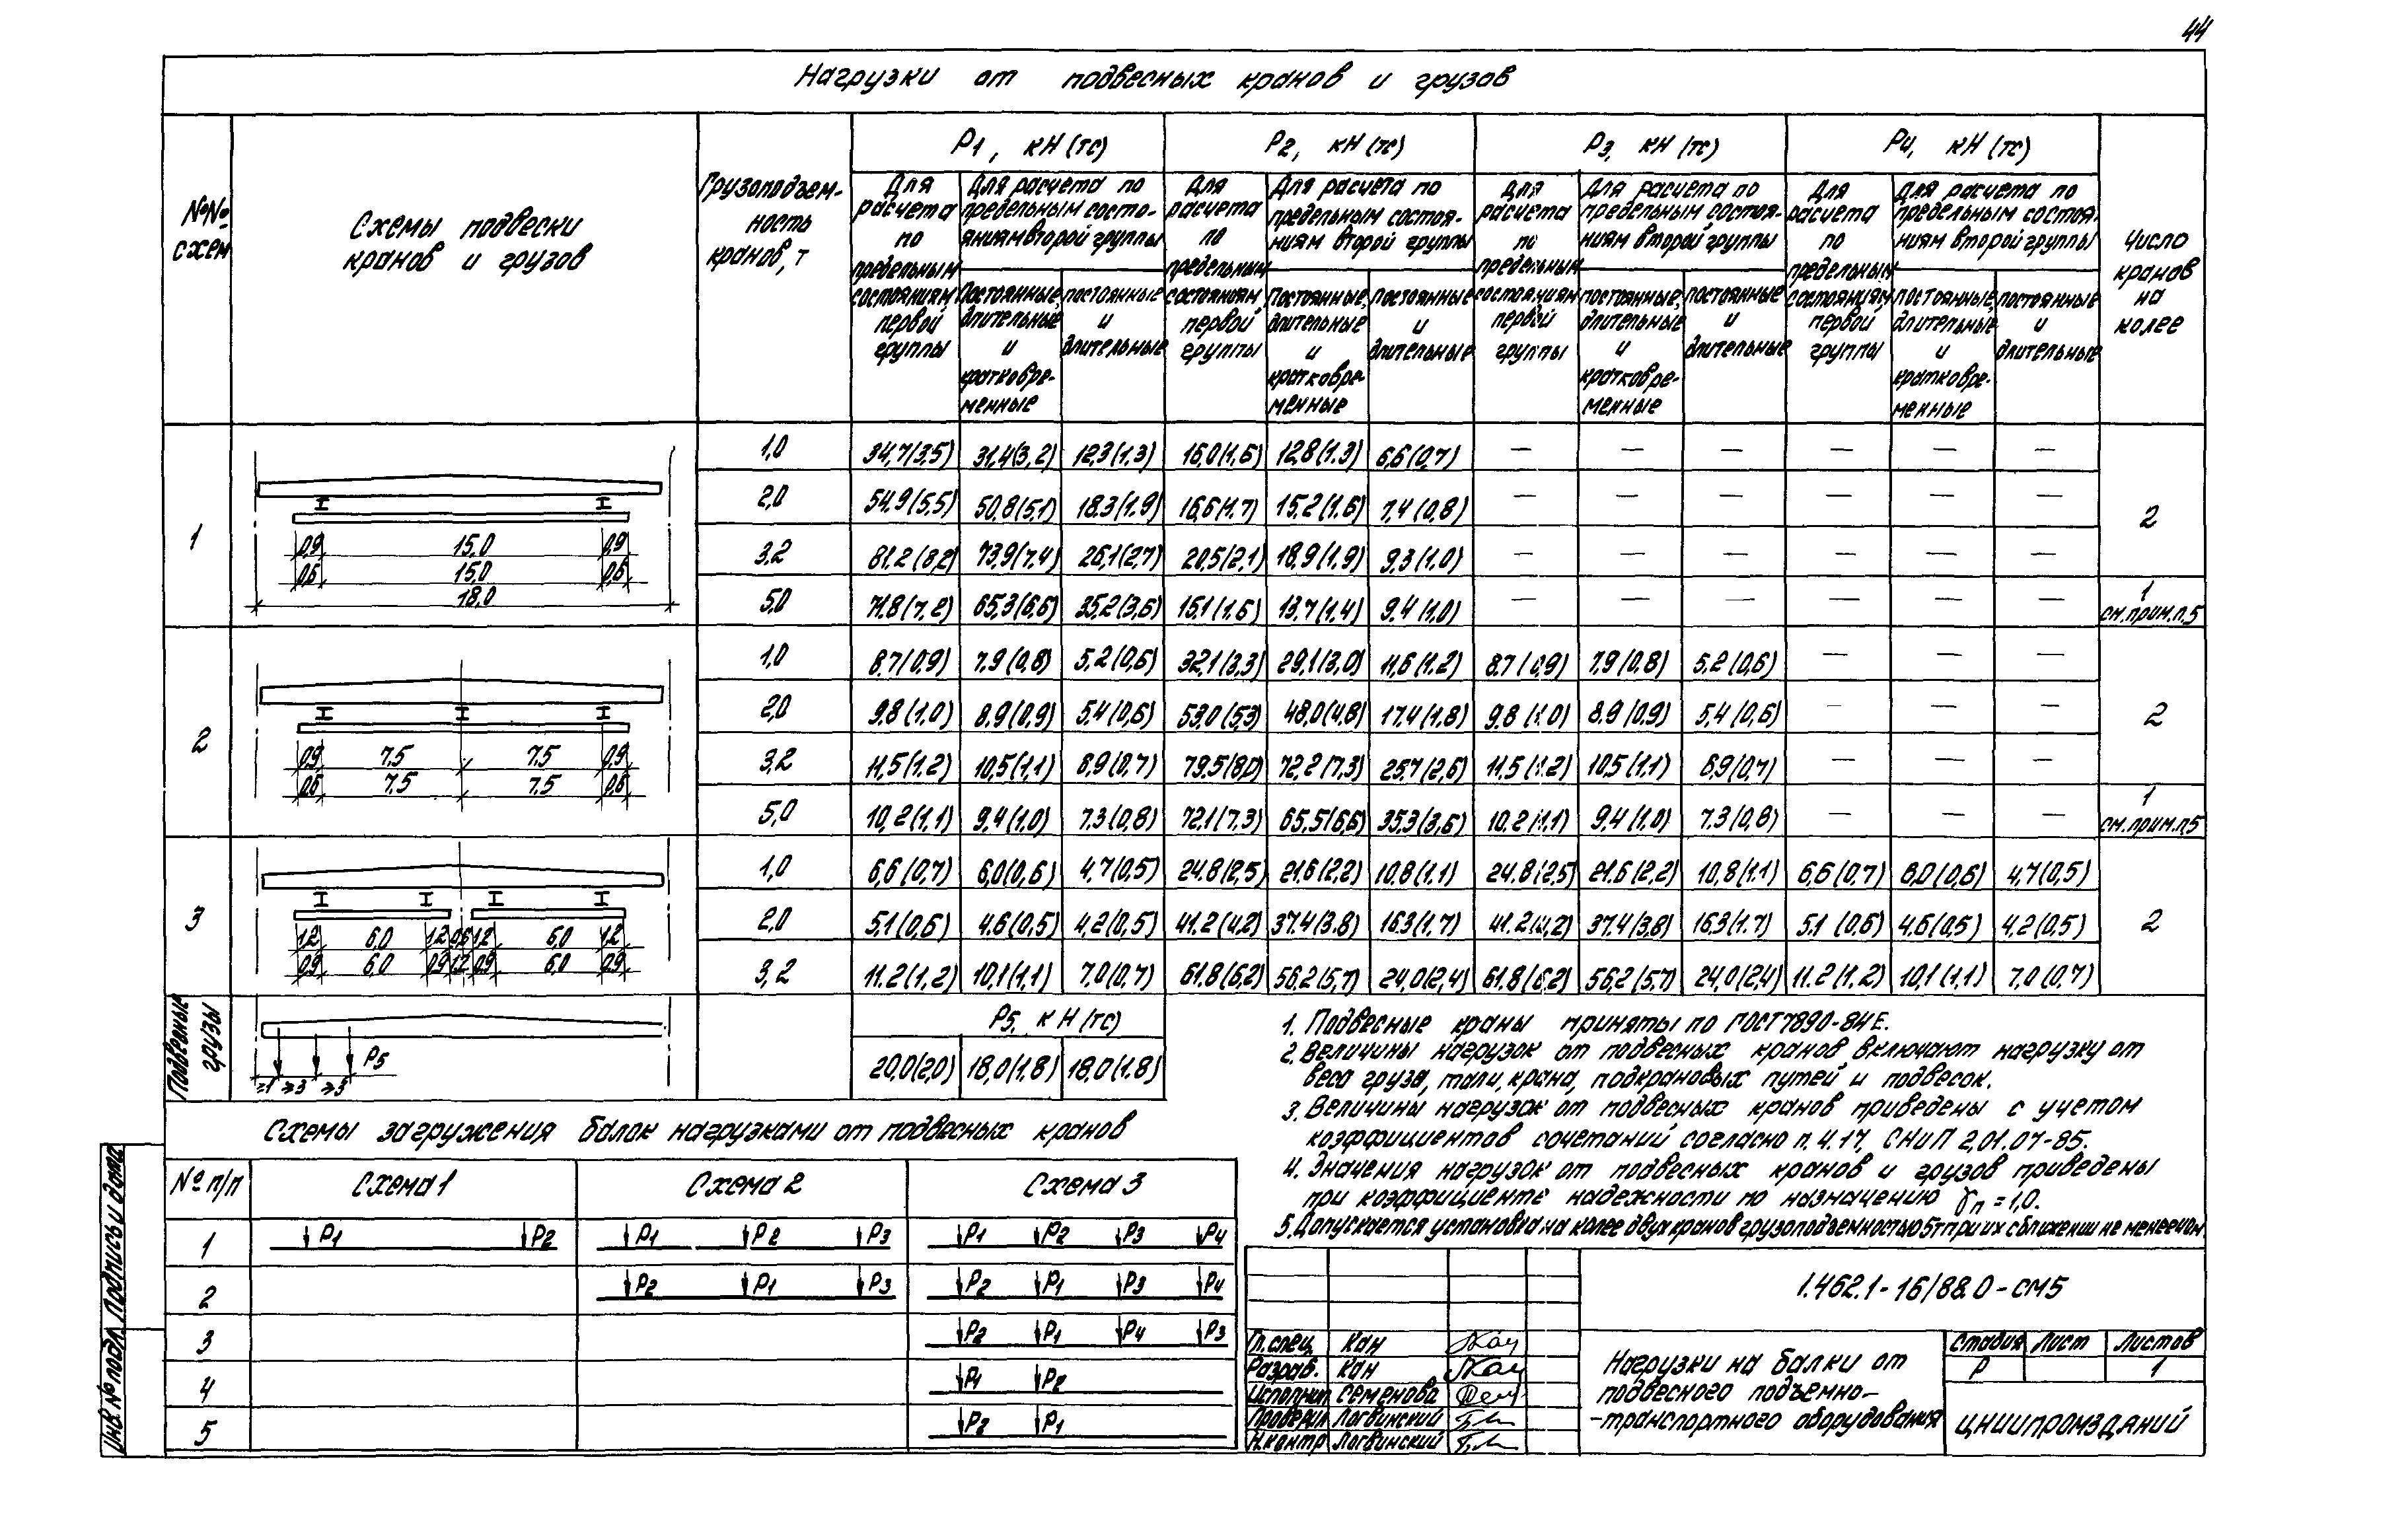 44
Нагрузки от подвесных кранов и грузов
№№ схем
Схемы подвески кранов и грузов
Грузоподъем-ность кранов, т
P1, кН (тс)
P2, кН (тс)
P3, кН (тс)
P4, кН (тс)
Число кранов на колее
Для расчета по предельным состояниям первой группы
Для расчета по предельным состо-яниям второй группы
Для расчета по предельным состояниям первой группы
Для расчета по предельным состоя-ниям второй группы
Для расчета по предельным состояниям первой группы
Для расчета по предельным состоя-ниям второй группы
Для расчета по предельным состояниям первой группы
Для расчета по предельным состоя-ниям второй группы
Постоянные, длительные и кратковре-менные
постоянные и длительные
Постоянные, длительные и кратковре-менные
постоянные и длительные
постоянные, длительные и кратковре-менные
постоянные и длительные
постоянные, длительные и кратковре-менные
постоянные и длительные
1
0,9 15,0 0,9
0,6 15,0 0,6
18,0
1,0 34,7(3,5) 31,4(3,2) 12,3(1,3) 16,0(1,6) 12,8(1.3) 6,6(0,7) — — — — — —
2,0 54,9(5,5) 50,8(5,1) 18.3(1.9) 16,6(1.7) 15.2(1.6) 7,4(0,8) — — — — — —
2
3,2 81.2(8,2) 73,9(7,4) 26,1(2,7) 20,5(2,1) 18,9(1,9) 9,3(1.0) — — — — — —
5,0 71,8(7,2) 65,3(6,6) 35,2(3,6) 15,1(1,6) 13,7(1,4) 9,4(1,0) — — — — — —
1 см.прим.п.5
2
0,9 7,5 7,5 0,9
0,6 7,5 7,5 0,6
1,0 8,7(0,9) 7,9(0,8) 5,2(0,6) 32,1(3,3) 29,1(3,0) 11,6(1.2) 8.7(0,9) 7,9(0,8) 5.2(0,6) — — —
2,0 9,8(1.0) 8,9(0,9) 5,4(0,6) 53,0(5,3) 48,0(4,8) 17,4(1.8) 9.8(1.0) 8,9(0,9) 5,4(0,6) — — —
2
3,2 11,5(1.2) 10,5(1,1) 6,9(0,7) 79,5(8,0) 72,2(7,3) 25,7(2,6) 11,5(1.2) 10,5(1,1) 6,9(0,7) — — —
5,0 10,2(1,1) 9,4(1,0) 7.3(0,8) 72,1(7,3) 65,5(6,6) 35,3(3,6) 10,2(1,1) 9,4(1,0) 7.3(0,8) — — —
1 см.прим.п.5
3
1,2 6,0 1,2 0,6 1,2 6,0 1,2
0,9 6,0 0,9 1,2 0,9 6,0 0,9
1,0 6,6(0,7) 6,0(0,6) 4,7(0,5) 24.8(2,5) 21.6(2,2) 10,8(1,1) 24.8(2,5) 21.6(2,2) 10,8(1.1) 6,6(0,7) 6,0(0,6) 4,7(0,5)
2,0 5,1(0,6) 4,6(0,5) 4,2(0,5) 41.2(4,2) 37.4(3.8) 16.3(1,7) 41.2(4,2) 37.4(3,8) 16,3(1.7) 5.1(0,6) 4.6(0,5) 4.2(0,5)
2
3,2 11.2(1,2) 10,1(1,1) 7,0(0,7) 61.8(6,2) 56,2(5,7) 24,0(2,4) 61.8(6,2) 56,2(5,7) 24,0(2,4) 11.2(1,2) 10,1(1,1) 7,0(0,7)
Подвесные грузы
P5
≥1 ≥3 ≥3
P5, кН (тс)
20,0(2,0) 18,0(1,8) 18,0(1.8)
1. Подвесные краны приняты по ГОСТ 7890-84Е.
2. Величины нагрузок от подвесных кранов включают нагрузку от
веса груза, тали, крана, подкрановых путей и подвесок.
3. Величины нагрузок от подвесных кранов приведены с учетом
коэффициентов сочетаний согласно п. 4.17, СНиП 2.01.07-85.
4. Значения нагрузок от подвесных кранов и грузов приведены
при коэффициенте надежности по назначению γп = 1,0.
5. Допускается установка на колее двух кранов грузоподъемностью 5т при их сближении не менее чем
Схемы загружения балок нагрузками от подвесных кранов
№ п/п Схема 1 Схема 2 Схема 3
1 P1 P2 P1 P2 P3 P1 P2 P3 P4
2 P2 P1 P3 P2 P1 P3 P4
3 P2 P1 P4 P3
4 P1 P2
5 P2 P1
Инв. № подл. Подпись и дата
1.462.1-16/88.0-СМ5
Гл.спец. Кан
Разраб. Кан
Исполнит. Семенова
Проверил Логвинский
Н.контр Логвинский
Нагрузки на балки от
подвесного подъемно-
-транспортного оборудования
Стадия Лист Листов
Р 1
ЦНИИПРОМЗДАНИЙ